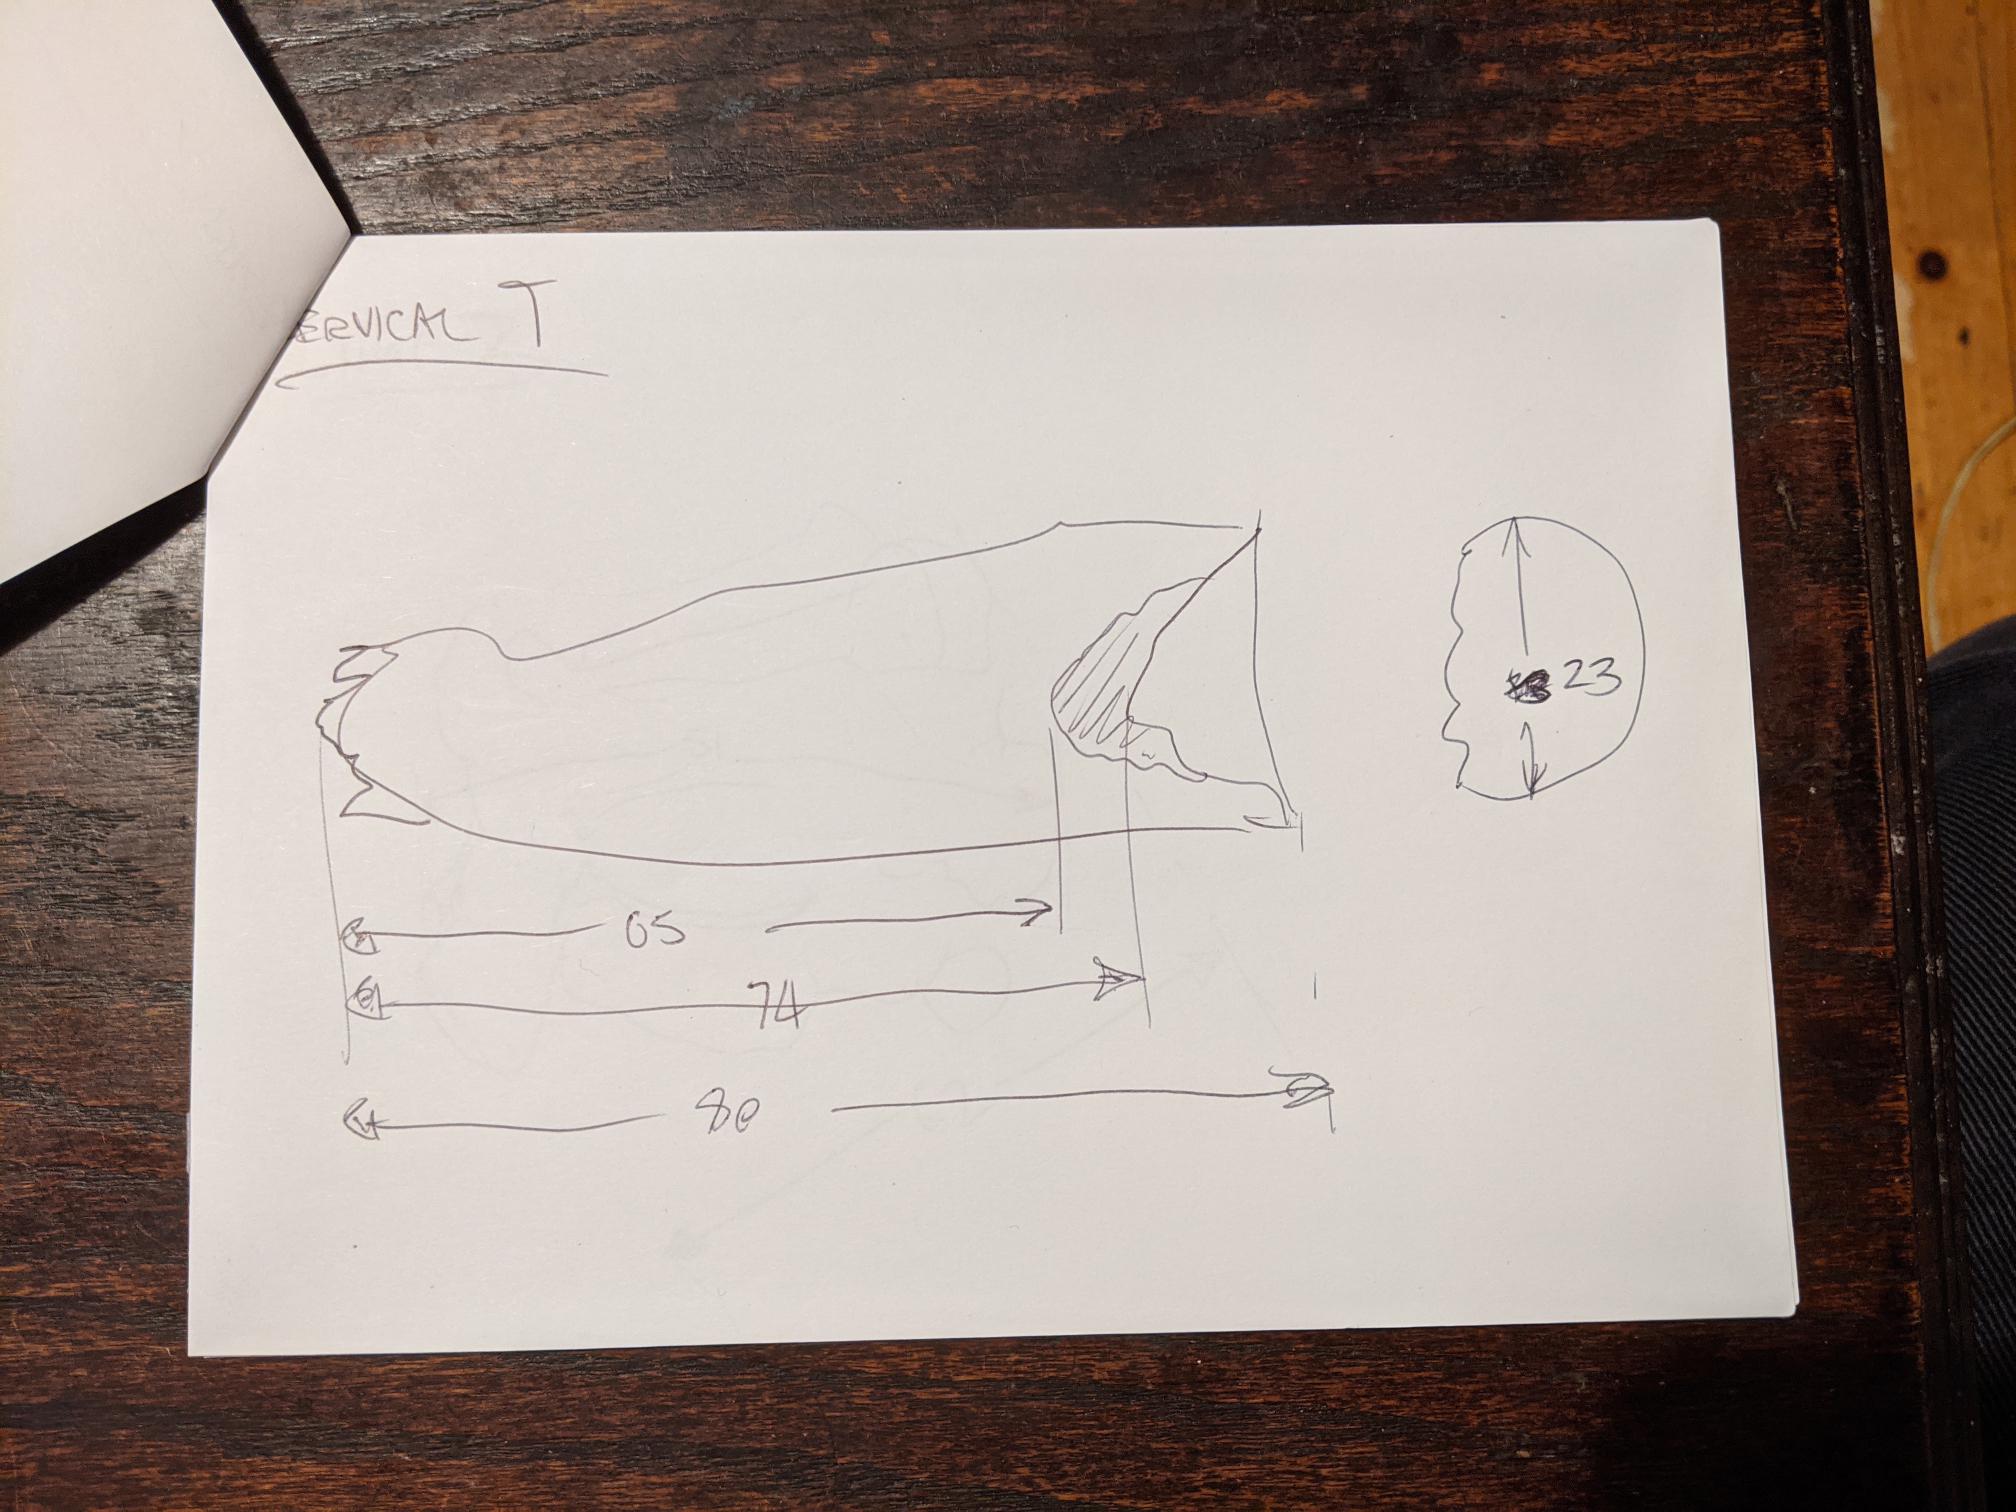 ERVICAL T
23
65
74
80